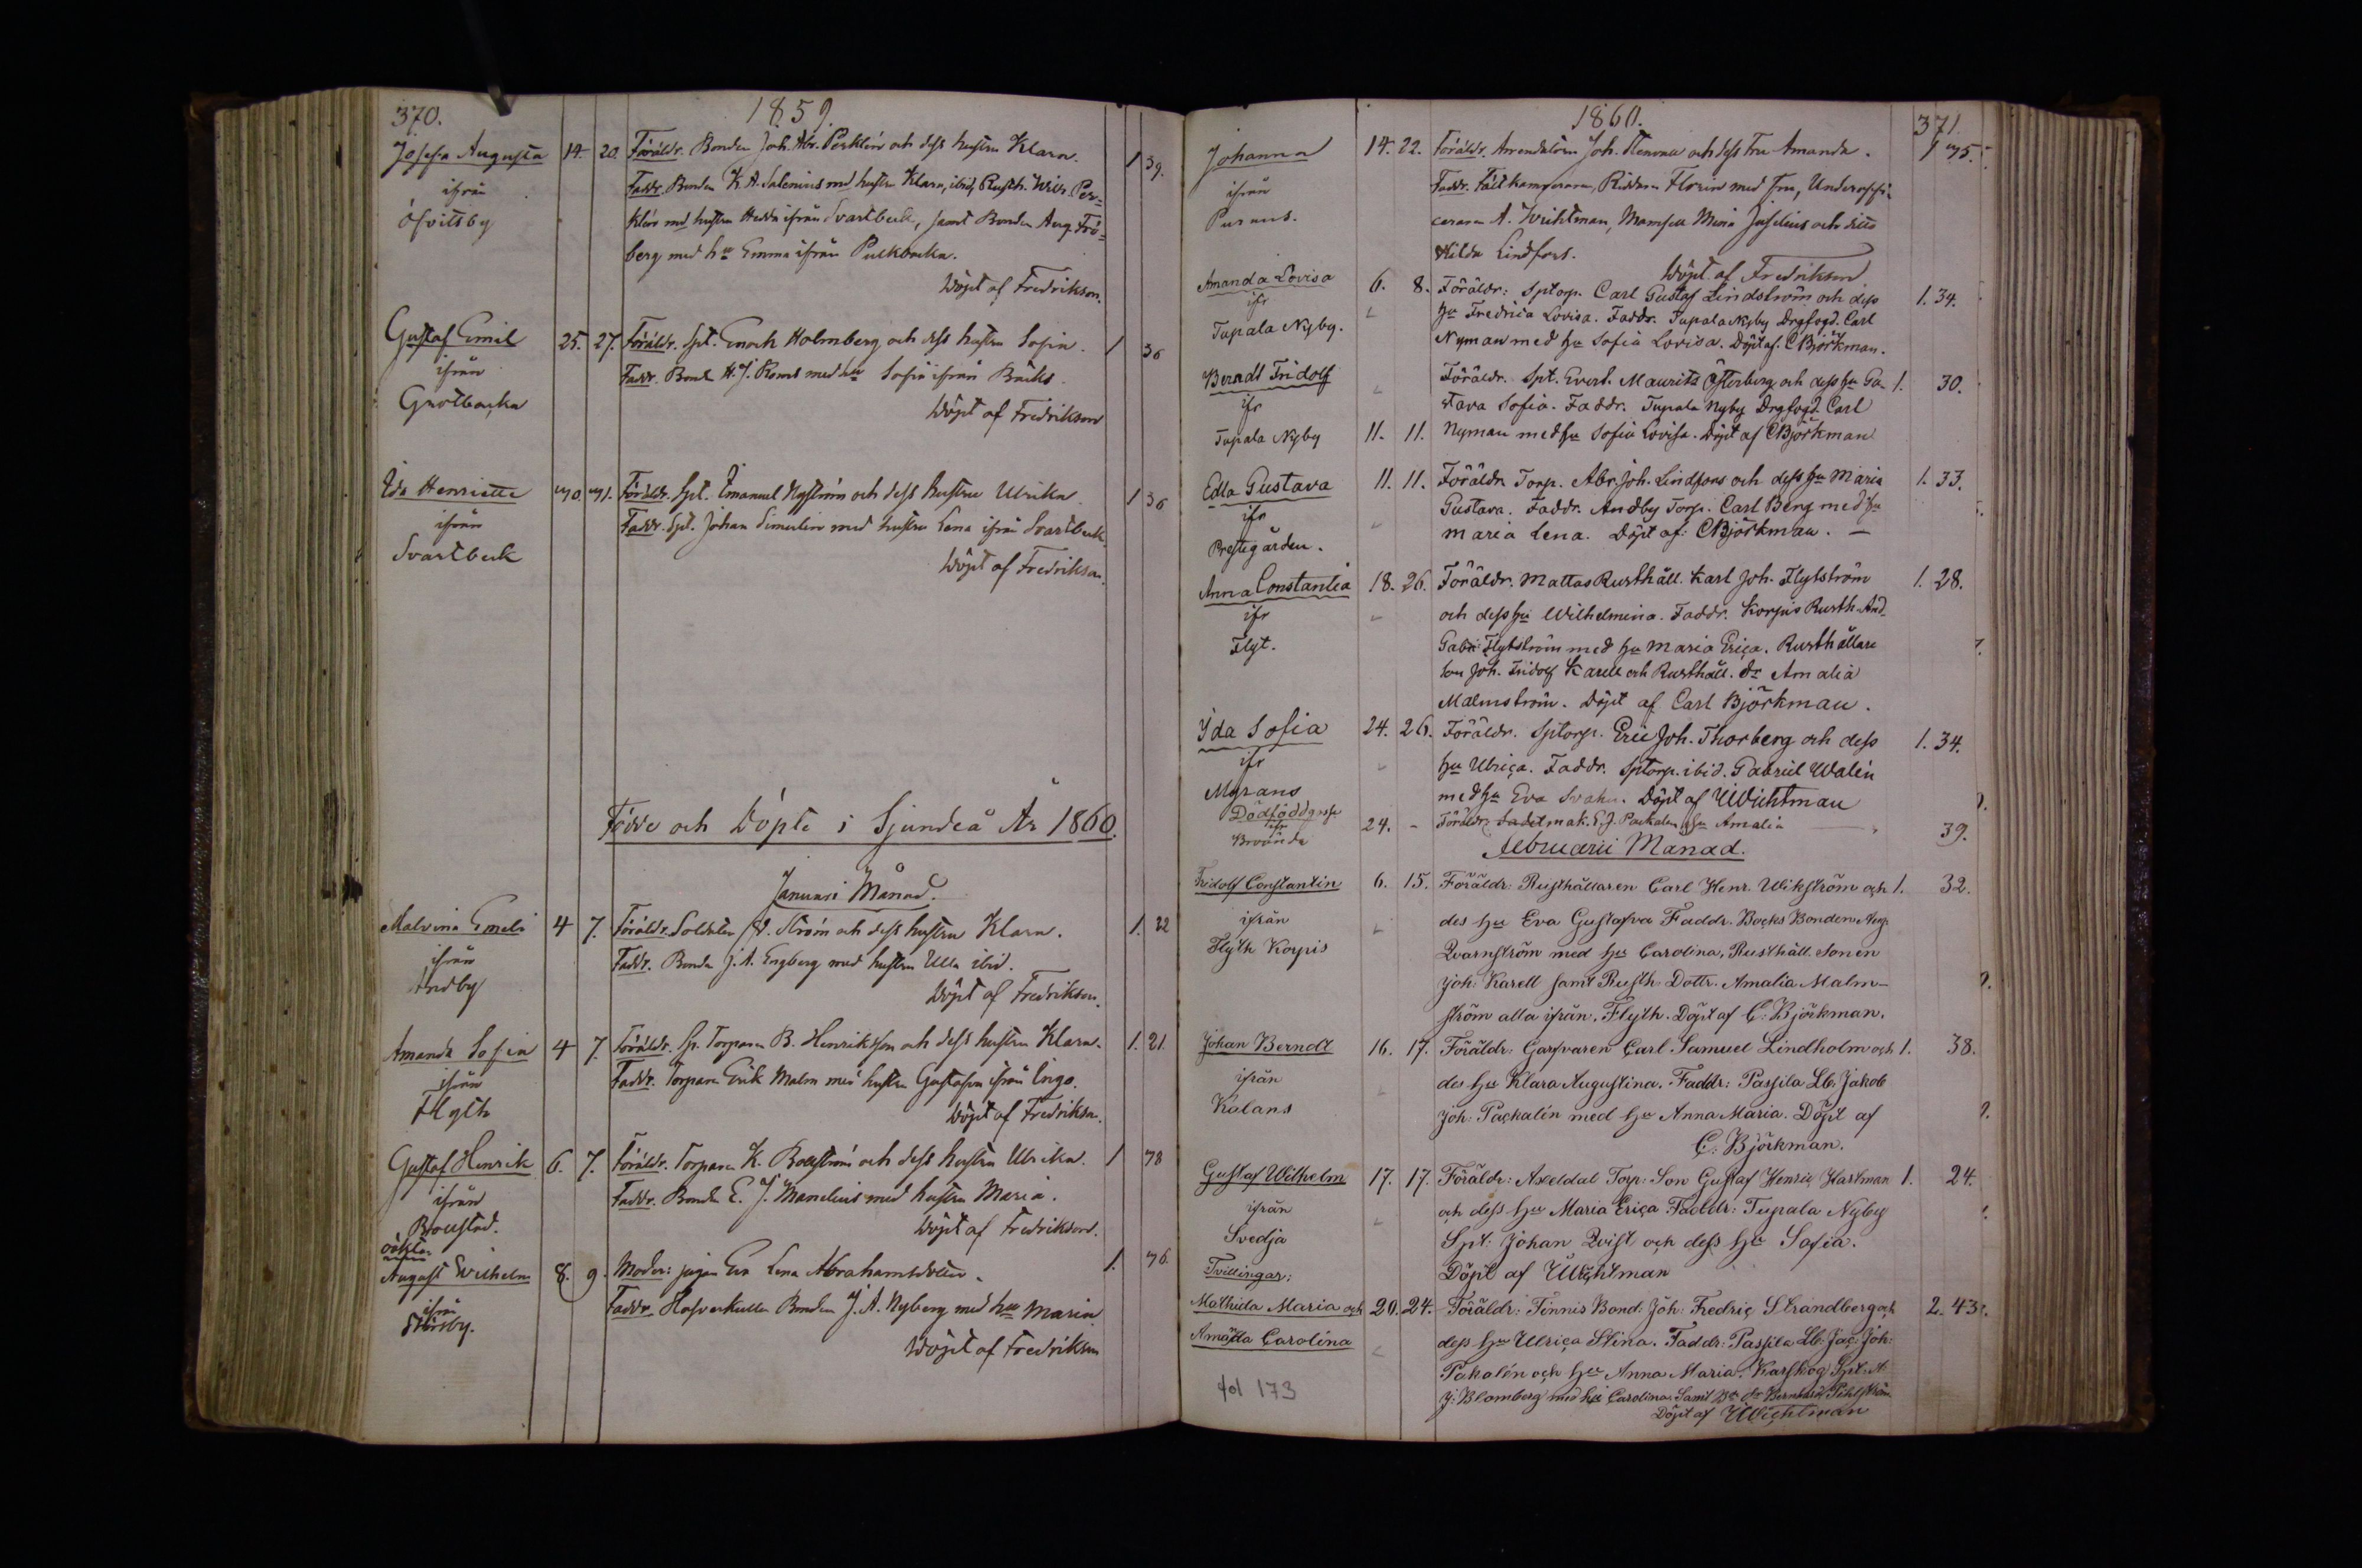 370.
1859.
Josefa Augusta 14. 20. Föräldr. Bonden Joh. Abr. Perklén och dess hustru Klara. 1 39.
ifrån Faddr. Bonden K. A. Salenius med hustru Klara, ibid, Rusth. Wilh. Per-
Ofvitsby klén med hustru Hedda ifrån Svartbeck, samt Bonden Aug. Frö-
berg med hu Emma ifrån Pulkbacka.
Döpt af Fredrikson.
Gustaf Emil 25. 27. Föräldr. Spt. Enoch Holmberg och dess hustru Sofia. 1 36
ifrån Faddr. Bond. H. J. med hu Sofia ifrån Bäcks.
Grotbacka Döpt af Fredrikson
Ida Henriette Föräldr. Spt. Emanuel Nyström och dess hustru Ulrika. 1 36
ifrån Faddr. Spt. Johan Simelin med hustru Lena ifrån Svartbeck.
Svartbeck Döpt af Fredrikson.
Födde och Döpte i Sjundeå År 1860.
Januari Månad.
Malvina Emeli 4 7. Föräldr. Soldaten W. Ström och dess hustru Klara. 1. 22
ifrån Faddr. Bonden J. A. Engberg med hustru Ulla ibid.
Andby Döpt af Fredrikson.
Amanda Sofia 4 7. Föräldr. Sp. Torparen B. Henrikson och dess hustru Klara. 1. 21.
ifrån Faddr. Torparen Erik Malm med hustru Gustafva ifrån Engo.
Flyth Döpt af Fredrikson.
Gustaf Henrik 6. 7. Föräldr. Torparen K. Bollström och dess hustru Ulrika. 1 78
ifrån Faddr. Bonden E. J. Mandelius med hustru Maria.
Bollstad. Döpt af Fredrikson.
oäkta
August Wilhelm 8. 9. Moder: pigan Eva Lena Abrahamsdotter. 1.
ifrån Faddr. Hofverkulla Bonden J. A. Nyberg med hu Maria
Störsby. Döpt af Fredrikson
1860.
371.
Johanna 14. 22. Föräldr. Arrendatoren Joh. Stenvall och dess Fru Amanda.
ifrån Faddr. Fältkamreraren, Riddaren Florin med Fru, Underoffi-
Purnus. ceraren A. Wichtman, Mamsell Mina Juselius och ditto
Hilda Lindfors.
Döpt af Fredrikson
Amanda Lovisa 6. 8. Föräldr: Sptorp. Carl Gustaf Lindström och dess 1. 34.
ifr hu Fredrica Lovisa. Faddr. Tupala Nyby Drgfogd. Carl
Tupala Nyby. Nyman med hu Sofia Lovisa. Döpt af. C Björkman.
Berndt Fridolf Föräldr. Spt. Evert. Maurits Österberg och dess hu Gu- 1. 30.
ifr stava Sofia. Faddr. Tupala Nyby Drgfogd. Carl
Tupala Nyby 11. 11. Nyman med hu Sofia Lovisa. Döpt af C Björkman
Edla Gustava 11. 11. Föräldr. Torp. Abr. Joh. Lindfors och dess hu Maria 1. 33.
ifr Gustava. Faddr. Andby Torp. Carl Berg med hu
Prestgården. Maria Lena. Döpt af: C Björkman. —
Anna Constantia 18. 26. Föräldr. Mattas Rusthåll. Karl Joh. Flytström 1. 28.
ifr och dess hu Wilhelmina. Faddr. Korpis Rusth. And.
Flyt. Gabr. Flytström med hu Maria Erica. Rusthållare
son Joh. Fridolf Karell och Rusthåll. dr Amalia
Malmström. Döpt af Carl Björkman.
Ida Sofia 24. 26. Föräldr. Sptorp. Eric Joh. Thorberg och dess 1. 34.
ifr hu Ulrica. Faddr. Sptorp. ibid. Gabriel Walén
Myrans med hu Eva Svahn. Döpt af Wichtman
Dödfödd gosse
ifr 24. - Föräldr: mak. E. J. Packalen, hu Amalia 39.
Brännda
Februarii Månad.
Fridolf Constantin 6. 15. Föräldr: Rusthållaren Carl Henr. Wikström och 1. 32.
ifrån des hu Eva Gustafva Faddr. Backs Bonden Aug.
Flyth Korpis Qvarnström med hu Carolina, Rusthåll. Sonen
Joh: Karell samt Rusth. Dottr. Amalia Malm-
ström alla ifrån. Flyth. Döpt af C. Björkman.
Johan Berndt 16. 17. Föräldr: Garfvaren Carl Samuel Lindholm och 1. 38.
ifrån des hu Klara Augustina. Faddr: Passila Lb. Jakob
Kalans Joh: Packalén med hu Anna Maria. Döpt af
C: Björkman.
Gustaf Wilhelm 17. 17. Föräldr: Axeldal Torp: Son Gustaf Henric Hartman 1. 24.
ifrån och dess hu Maria Erica Faddr: Tupala Nyby
Svedja Spt: Johan Qvist och dess hu Sofia.
Tvillingar: Döpt af Wichtman
Mathilda Maria och 20. 24. Föräldr: Finnis Bond: Joh: Fredric Strandberg och 2. 43.
Amanda Carolina dess hu Ulrica Stina. Faddr: Passila Lb: Jac: Joh:
Pakalén och hu Anna Maria. Karskog Spt. A.
fol 173 J: Blomberg med hu Carolina. Samt
Döpt af Wichtman